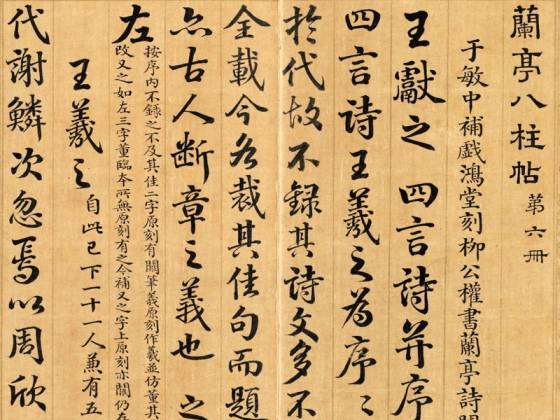 蘭亭八柱帖 第六冊
于敏中補戲鴻堂刻柳公權書蘭亭詩
王獻之 四言詩并序
四言詩王羲之為序〻
扵代故不錄其詩文多不
全載今各裁其佳句而題
亦古人斷章之義也 之
左
按序内不錄之不及其佳二字原刻有闕筆義原刻作羲並仿董其
改又之如左三字董臨本所無原刻有之今補又之字上原刻亦闕仍存
王羲之 自此已下一十一人兼有五
代謝鱗次忽焉以周欣